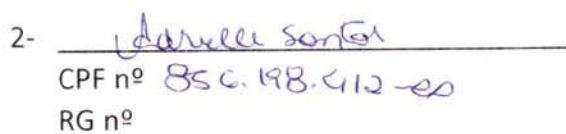 2- Santos
CPF nº 856.198.412-00
RG nº